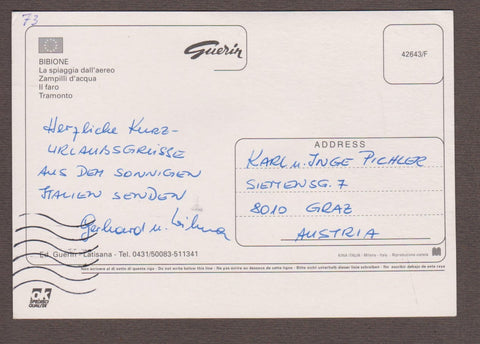 73
BIBIONE
La spiaggia dall'aereo
Zampilli d'acqua
Il faro
Tramonto
Guerin
42643/F
Herzliche KURZ-
URLAUBSGRÜSSE
AUS DEM SONNIGEN
ITALIEN SENDEN
Gerhard u.
ADDRESS
KARL u. INGE PICHLER
SIEMENSG. 7
8010 GRAZ
AUSTRIA
Ed. Guerin - Latisana - Tel. 0431/50083-511341
KINA ITALIA - Milano - Italy - Riproduzione vietata
Non scrivere al di sotto di questa riga - Do not write below this line - Ne pas écrire au dessous de cette ligne - Bitte nicht unterhalb dieser linie schreiben - No escribir debajo de esta raya